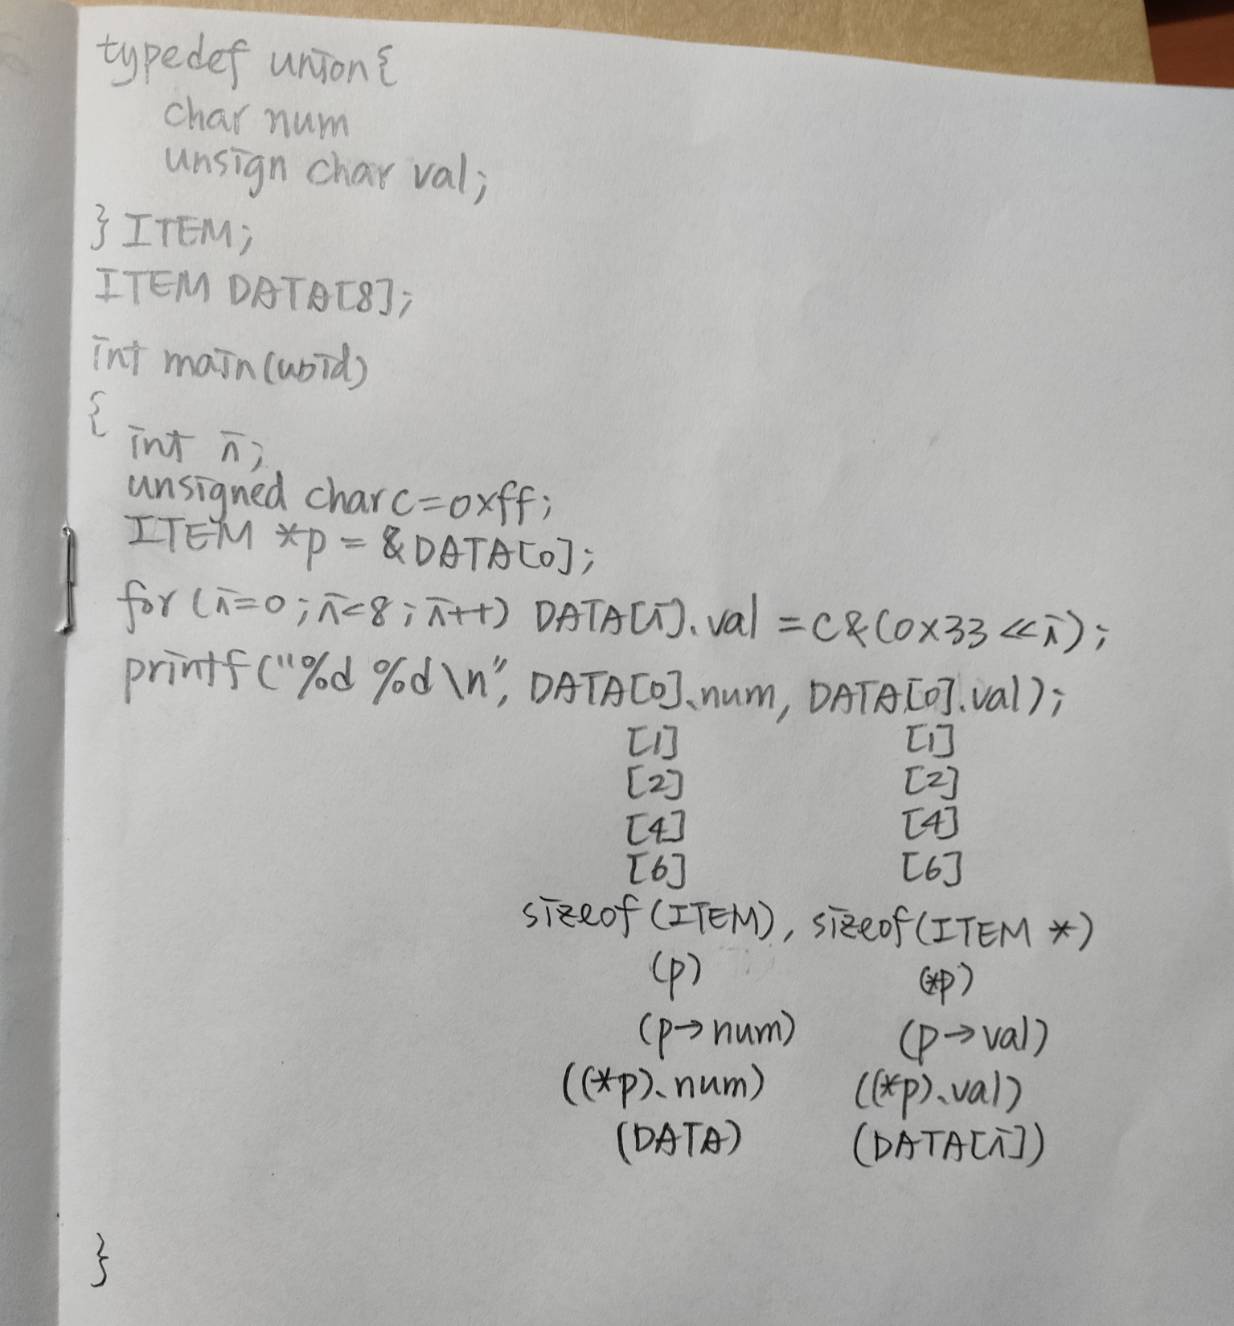 typedef union{
char num
unsign char val;
} ITEM;
ITEM DATA[8];
int main(void)
{
int i;
unsigned char c=0xff;
ITEM *p = &DATA[0];
for(i=0;i<8;i++) DATA[i].val = c&(0x33<<i);
printf("%d %d\n", DATA[0].num, DATA[0].val);
[1] [1]
[2] [2]
[4] [4]
[6] [6]
sizeof(ITEM), sizeof(ITEM *)
(p) (*p)
(p→num) (p→val)
((*p).num) ((*p).val)
(DATA) (DATA[i])
}